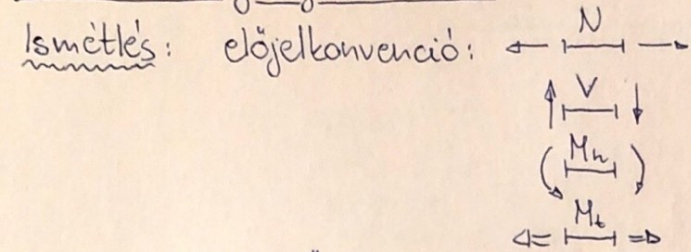 Ismétlés: előjelkonvenció: N
V
Mh
Mt